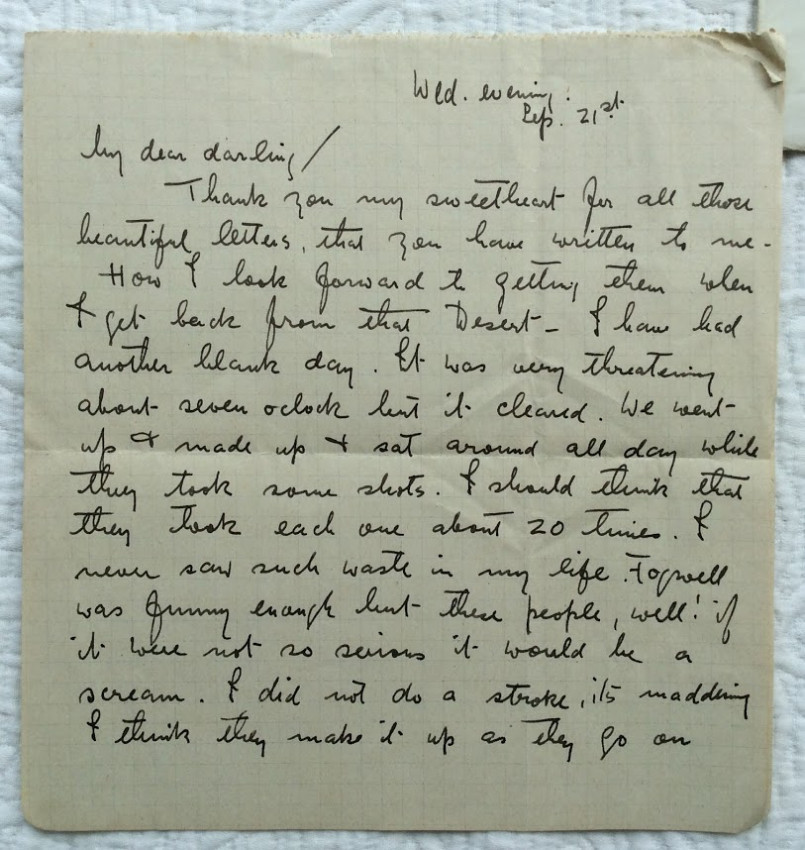 Wed. evening.
Sep. 21st.
My dear darling/
Thank you my sweetheart for all those
beautiful letters, that you have written to me -
How I look forward to getting them when
I get back from that Desert - I have had
another blank day. It was very threatening
about seven oclock but it cleared. We went
up & made up & sat around all day while
they took some shots. I should think that
they took each one about 20 times. I
never saw such waste in my life. Fogwell
was funny enough but these people, well! if
it were not so serious it would be a
scream. I did not do a stroke, its maddening
I think they make it up as they go on